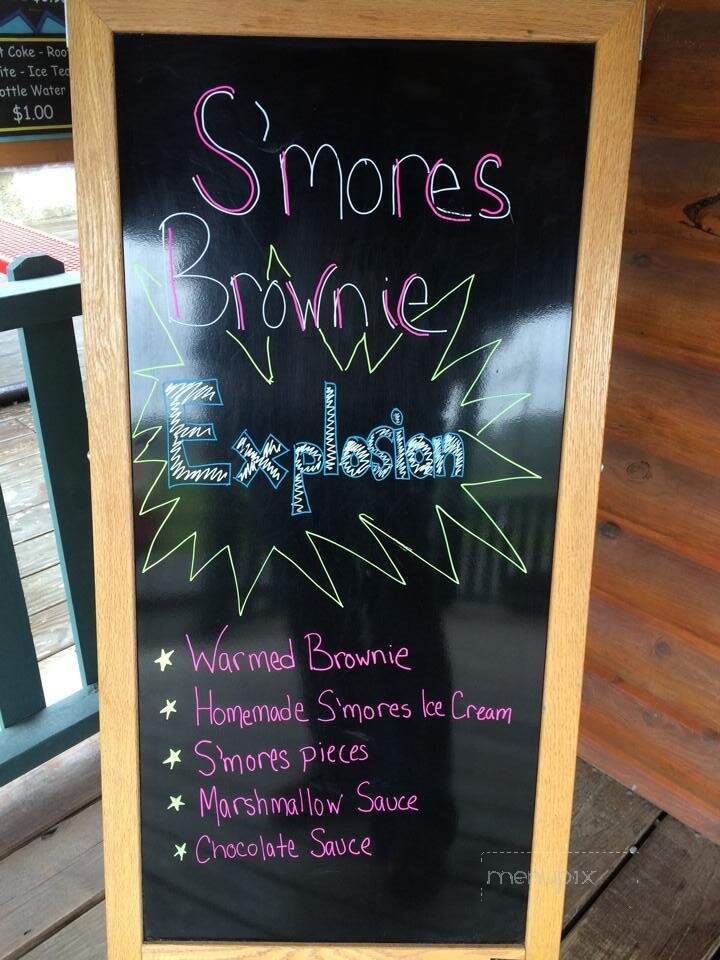 t Coke - Roo
ite - Ice Tea
ottle Water
$1.00
S'mores
Brownie
Explosion
Warmed Brownie
Homemade S'mores Ice Cream
S'mores pieces
Marshmallow Sauce
Chocolate Sauce
menupix